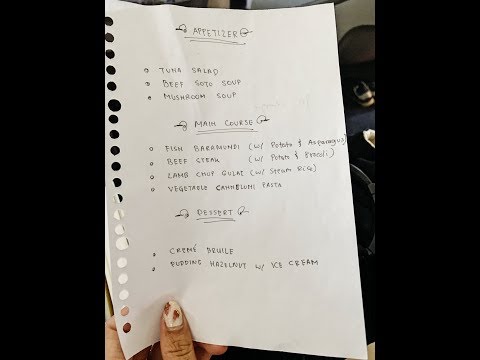 APPETIZER
TUNA SALAD
BEEF SOTO SOUP
MUSHROOM SOUP
MAIN COURSE
FISH BARAMUNDI (W/ Potato & Asparagus)
BEEF STEAK (W/ Potato & Brocoli)
LAMB CHOP GULAI (W/ Steam Rice)
VEGETABLE CANNELONI PASTA
DESSERT
CREME BRUILE
PUDDING HAZELNUT W/ ICE CREAM